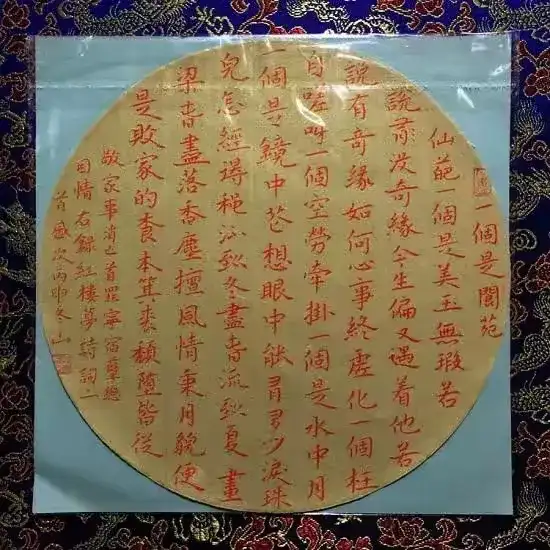 一個是閬苑
仙葩一個是美玉無瑕若
說沒奇緣今生偏又遇着他若
說有奇緣如何心事終虛化一個枉
自嗟呀一個空勞牽掛一個是水中月
一個是鏡中花想眼中能有多少淚珠
兒怎經得秋流到冬盡春流到夏畫
梁春盡落香塵擅風情秉月貌便
是敗家的根本箕裘頹墮皆從
敬家事消亡首罪寧宿孽總
因情右錄紅樓夢詩詞二
首歲次丙申冬山